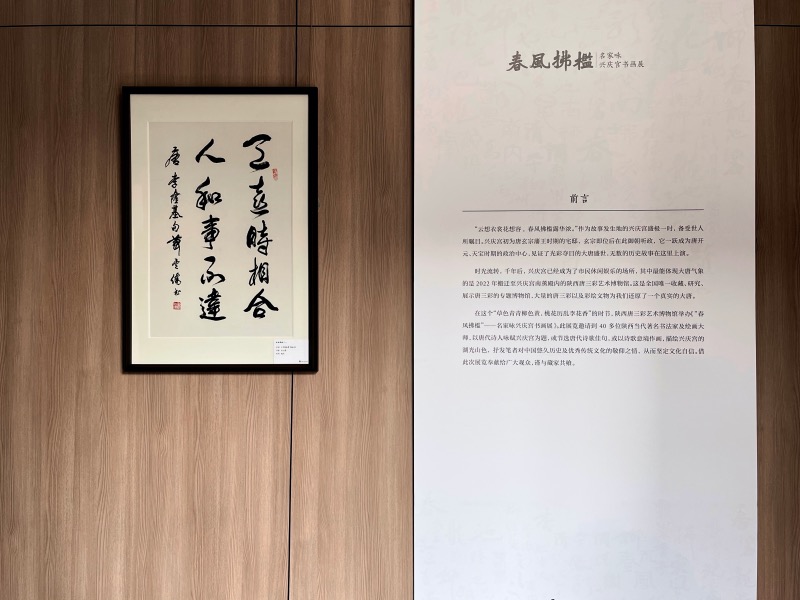 天意時相合
人和事不違
唐 李隆基句 薛
書
春風拂檻
名家咏
兴庆宫书画展
前言
“云想衣裳花想容，春风拂槛露华浓。”作为故事发生地的兴庆宫盛极一时，备受世人
所瞩目。兴庆宫初为唐玄宗藩王时期的宅邸，玄宗即位后在此御朝听政，它一跃成为唐开
元、天宝时期的政治中心，见证了光彩夺目的大唐盛世，无数的历史故事在这里上演。
时光流转，千年后，兴庆宫已经成为了市民休闲娱乐的场所，其中最能体现大唐气象
的是 2022 年搬迁至兴庆宫南熏殿内的陕西唐三彩艺术博物馆。这是全国唯一收藏、研究、
展示唐三彩的专题博物馆，大量的唐三彩以及彩绘文物为我们还原了一个真实的大唐。
在这个“草色青青柳色黄，桃花历乱李花香”的时节，陕西唐三彩艺术博物馆举办《“春
风拂槛”——名家咏兴庆宫书画展》。此展览邀请到 40 多位陕西当代著名书法家及绘画大
师，以唐代诗人咏赋兴庆宫为题，或书选唐代诗歌佳句，或以诗歌意境作画，描绘兴庆宫的
湖光山色，抒发笔者对中国悠久历史及优秀传统文化的敬仰之情，从而坚定文化自信。借
此次展览奉献给广大观众，请与藏家共飨。